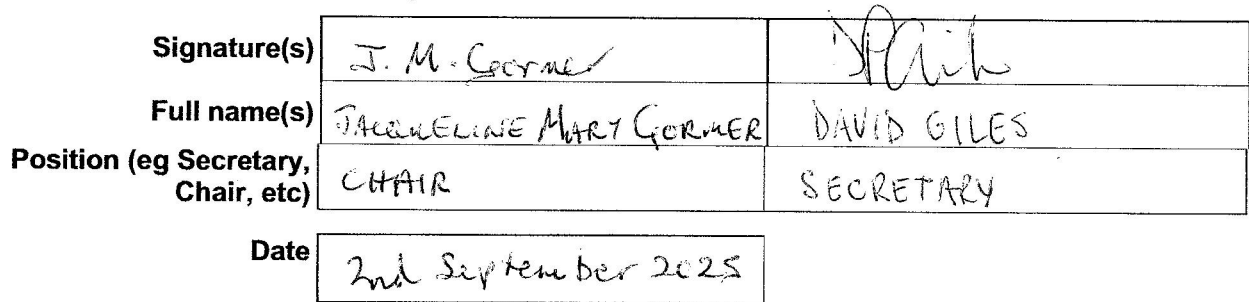 Signature(s) J. M. Gormer
Full name(s) JACQUELINE MARY GORMER DAVID GILES
Position (eg Secretary, Chair, etc) CHAIR SECRETARY
Date 2nd September 2025